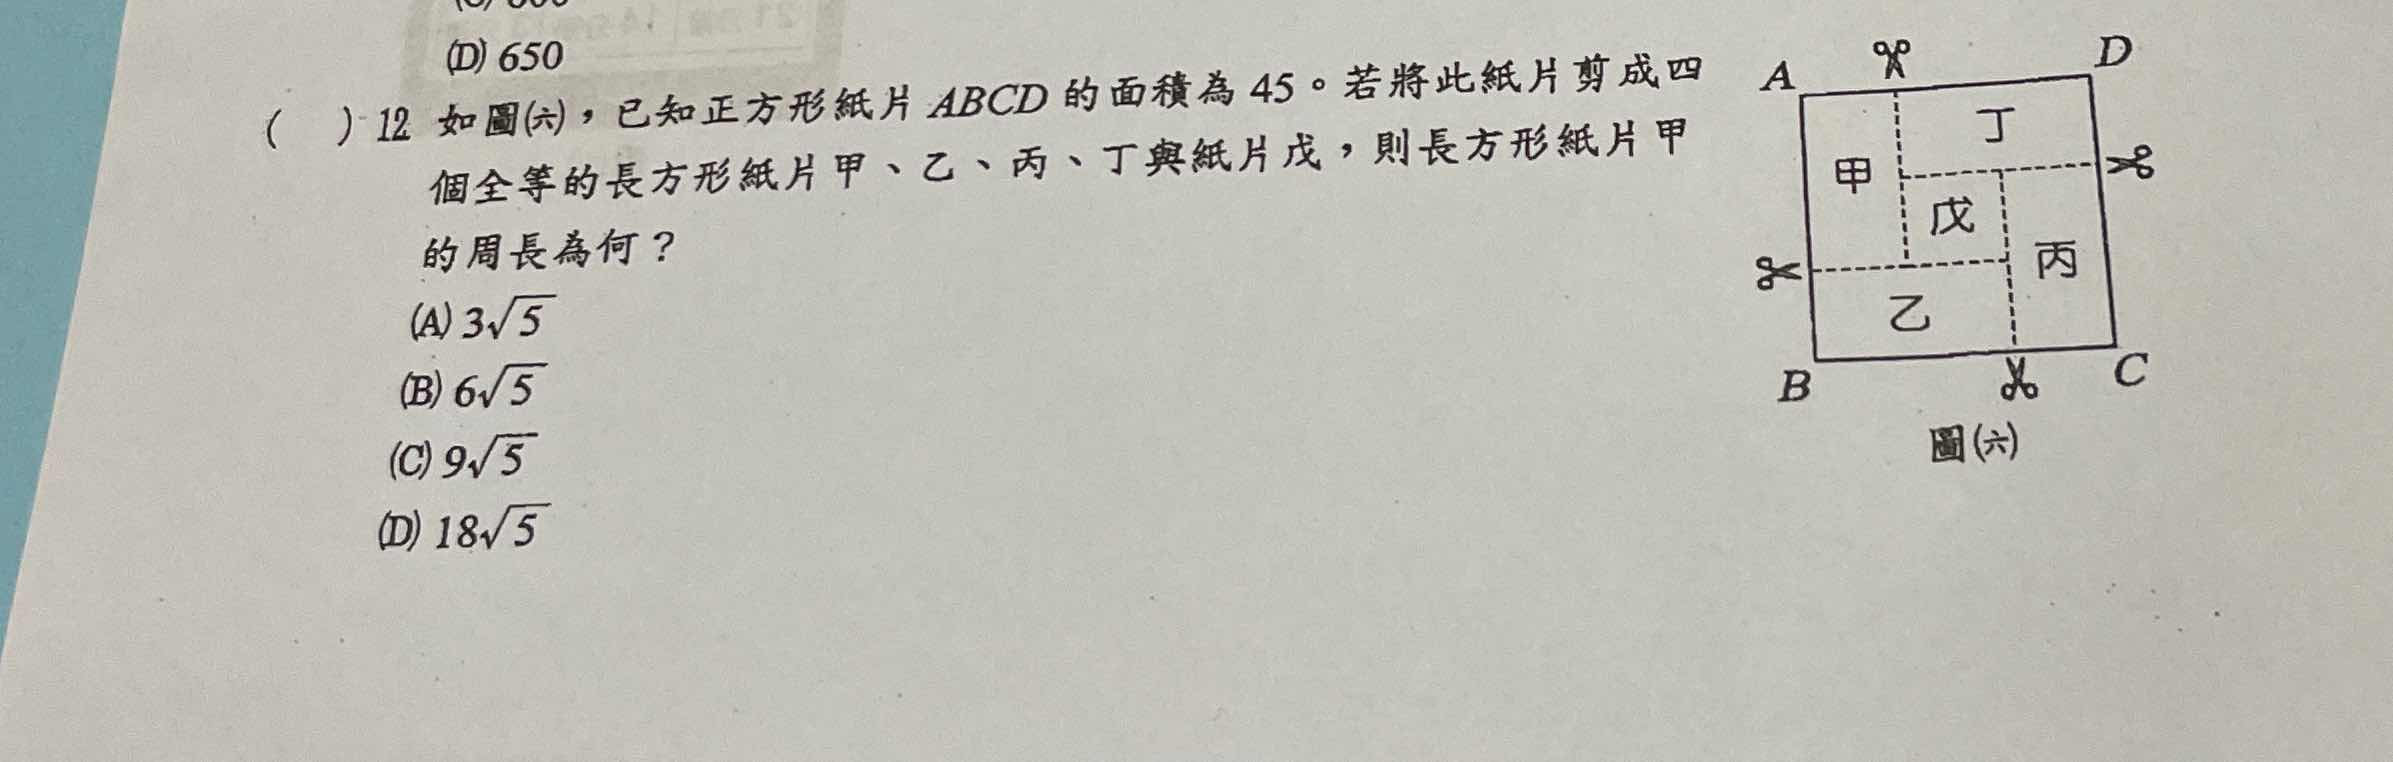 (D) 650
(　) 12 如圖(六)，已知正方形紙片 ABCD 的面積為 45。若將此紙片剪成四
個全等的長方形紙片甲、乙、丙、丁與紙片戊，則長方形紙片甲
的周長為何？
(A) 3√5
(B) 6√5
(C) 9√5
(D) 18√5
A
D
甲
丁
戊
丙
乙
B
C
圖(六)